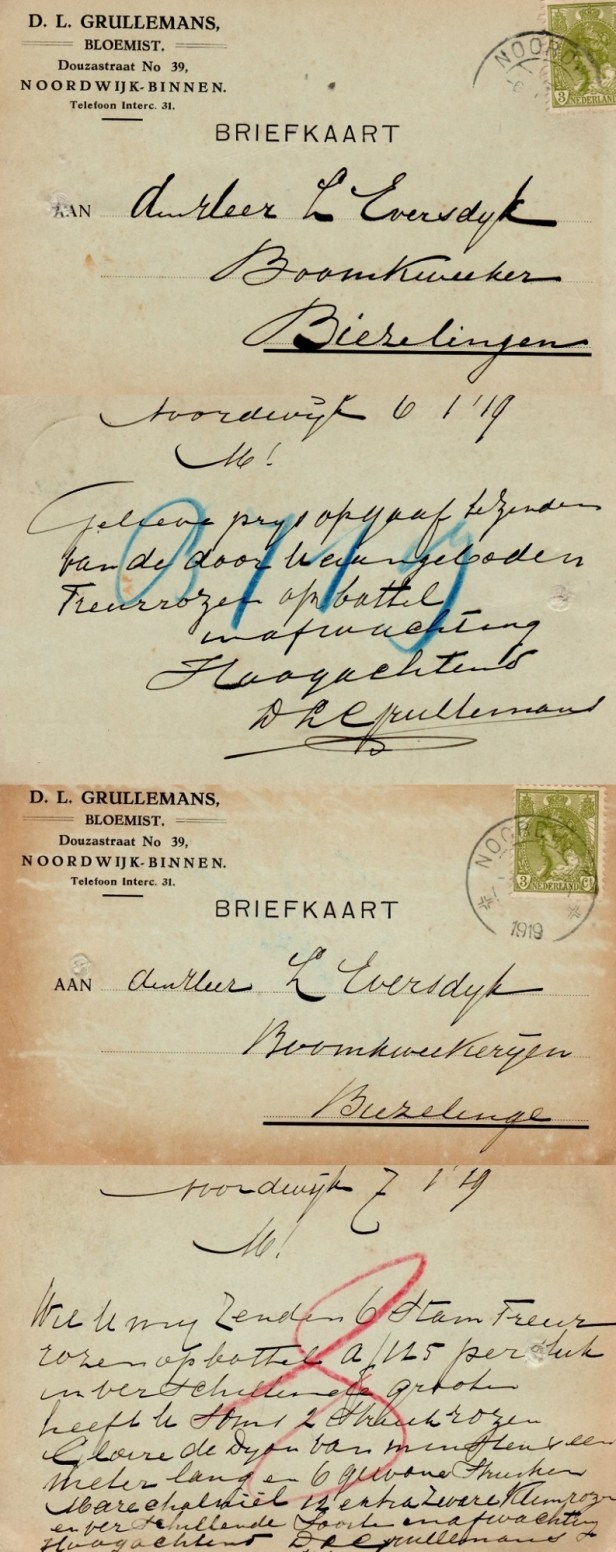 D. L. GRULLEMANS,
BLOEMIST.
Douzastraat No 39,
NOORDWIJK-BINNEN.
Telefoon Interc. 31.
NOORDW
3 NEDERLAND
BRIEFKAART
AAN den Heer L Eversdyk
Boomkweeker
Biezelingen
Noordwijk 6 1 '19
M!
Gelieve prys opgaaf te Zenden
van de door U aangeboden
Treurrozen op bottel
in afwachting
Hoogachtend
D L Grullemans
D. L. GRULLEMANS,
BLOEMIST.
Douzastraat No 39,
NOORDWIJK-BINNEN.
Telefoon Interc. 31.
NOORDW
1919
3 NEDERLAND Ct
BRIEFKAART
AAN den Heer L Eversdyk
Boomkweekeryen
Biezelinge
Noordwijk 7 1 '19
M!
Wil U my Zenden 6 Stam Treur
rozen op bottel a f 1.25 per stuk
in verschillende grooten
heeft U soms 2 Struikrozen
Gloire de Dyon van minstens een
meter lang en 6 gewone Struiken
Marechal niel 12 extra Zware Klimrozen
in verschillende Soort in afwachting
Hoogachtend D L Grullemans